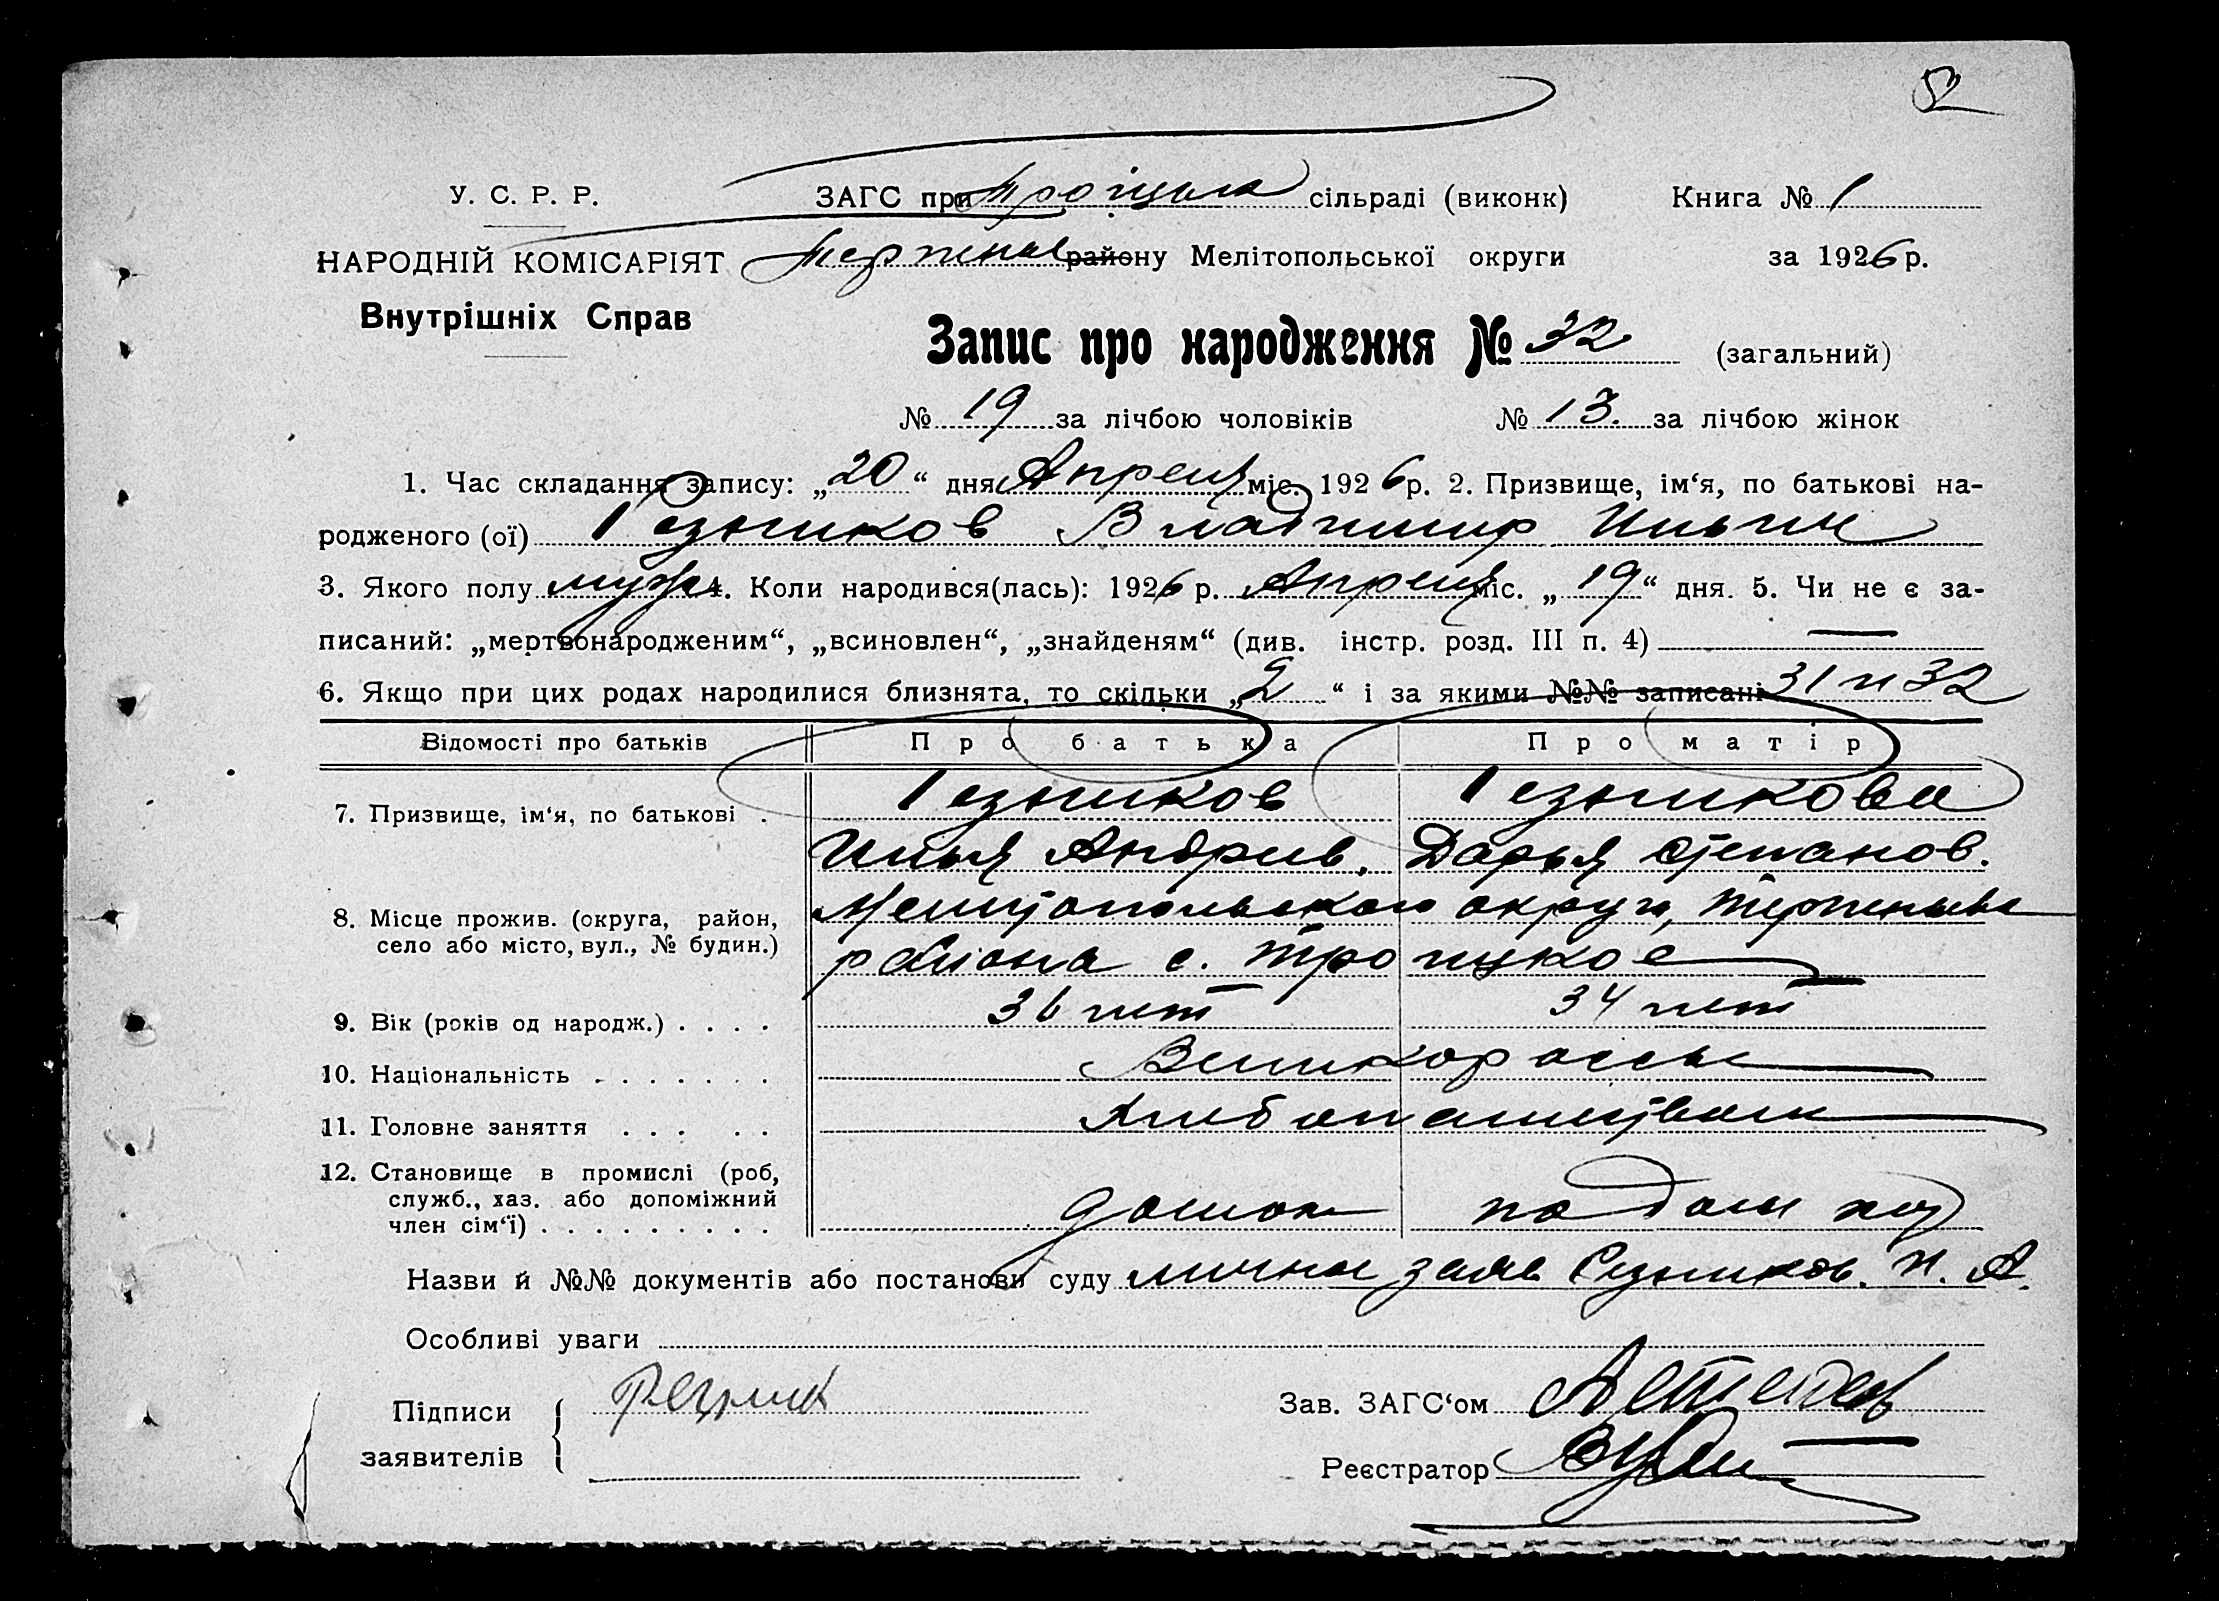 52
У. С. Р. Р. ЗАГС при Троіцька сільраді (виконк) Книга № 1
НАРОДНІЙ КОМІСАРІЯТ Терпенье району Мелітопольської округи за 1926 р.
Внутрішніх Справ
Запис про народження № 32 (загальний)
№ 19 за лічбою чоловіків № 13. за лічбою жінок
1. Час складання запису: „20“ дня Апреля міс. 1926 р. 2. Призвище, ім‘я, по батькові на-
родженого (ої) Резников Владимир Ильич
3. Якого полу муж 4. Коли народився(лась): 1926 р. Апреля міс. „19“ дня. 5. Чи не є за-
писаний: „мертвонародженим“, „всиновлен“, „знайденям“ (див. інстр. розд. III п. 4) —
6. Якщо при цих родах народилися близнята, то скільки „2“ і за якими №№ записані 31 и 32
Відомості про батьків Про батька Про матір
7. Призвище, ім‘я, по батькові . Резников Резникова
Илья Андреев. Дарья Степанов.
8. Місце прожив. (округа, район, Мелитопольского округа,
село або місто, вул., № будин.) района с. Троицкое
9. Вік (років од народж.) . . . . 36 лет 34 лет
10. Національність . . . . . . . Великороссы
11. Головне заняття . . . . . Хлебопашество
12. Становище в промислі (роб,
служб., хаз. або допоміжний
член сім‘ї) . . . . . . . . .
Назви й №№ документів або постанови суду личное заяв Резников. И. А.
Особливі уваги
Підписи Резник Зав. ЗАГС‘ом
заявителів Реєстратор